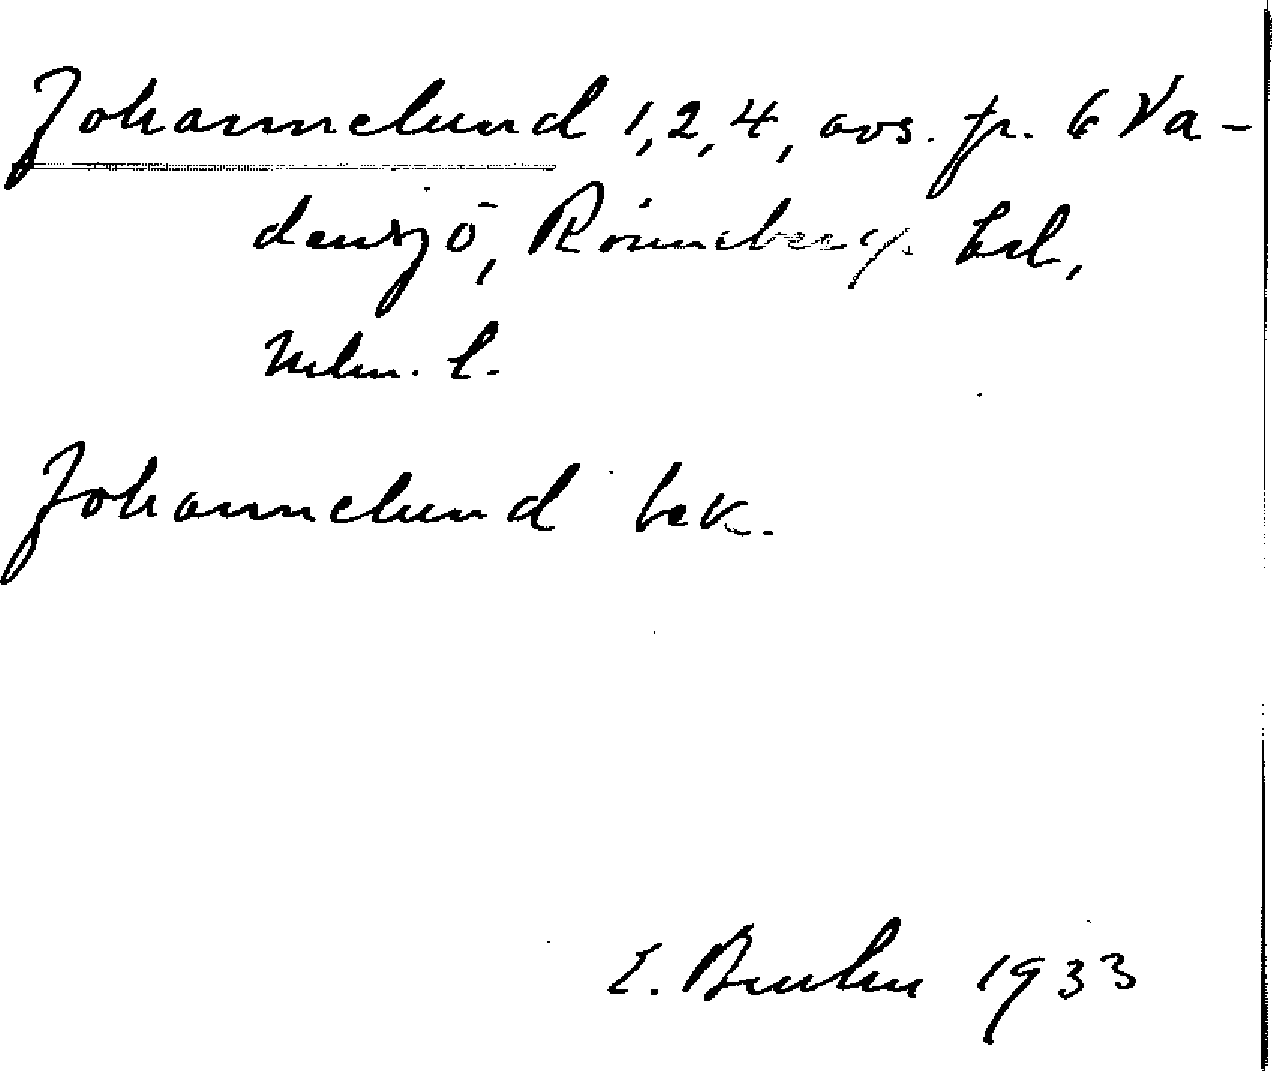 Johannelund 1, 2, 4, avs. fr. 6 Va-
densjö, Rönneberga hd,
Mlm. l.
Johannelund bek.
E. Bruhn 1933